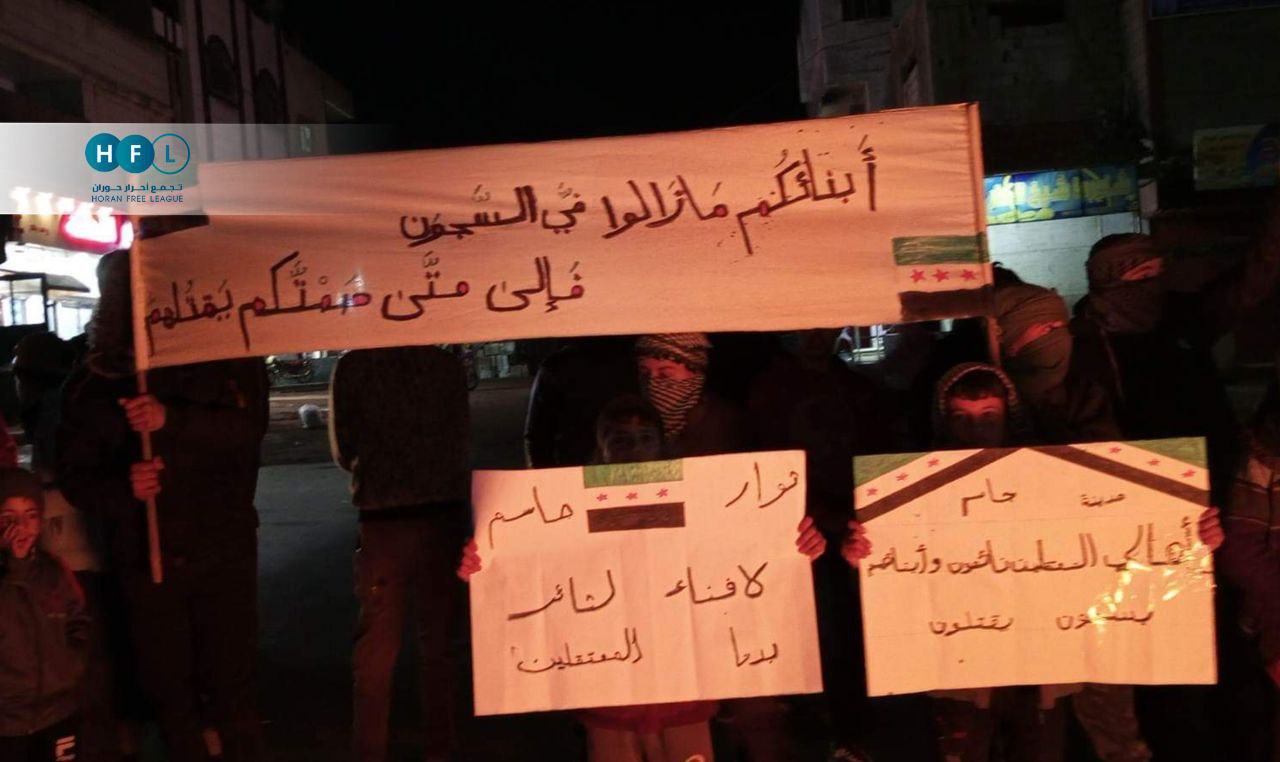 HFL
تجمع أحرار حوران
HORAN FREE LEAGUE
أَبنَائكُم مَازَالوا فيِّ السِّجون
فَإِلىَ متَّى صَمْتَّكم يَقتُلهم
ثوار جاسم
لا فناء لثائر
المعتقلين
مدينة جاسم
أهالي المعتقلين نائمون وأبنائهم
يقتلون